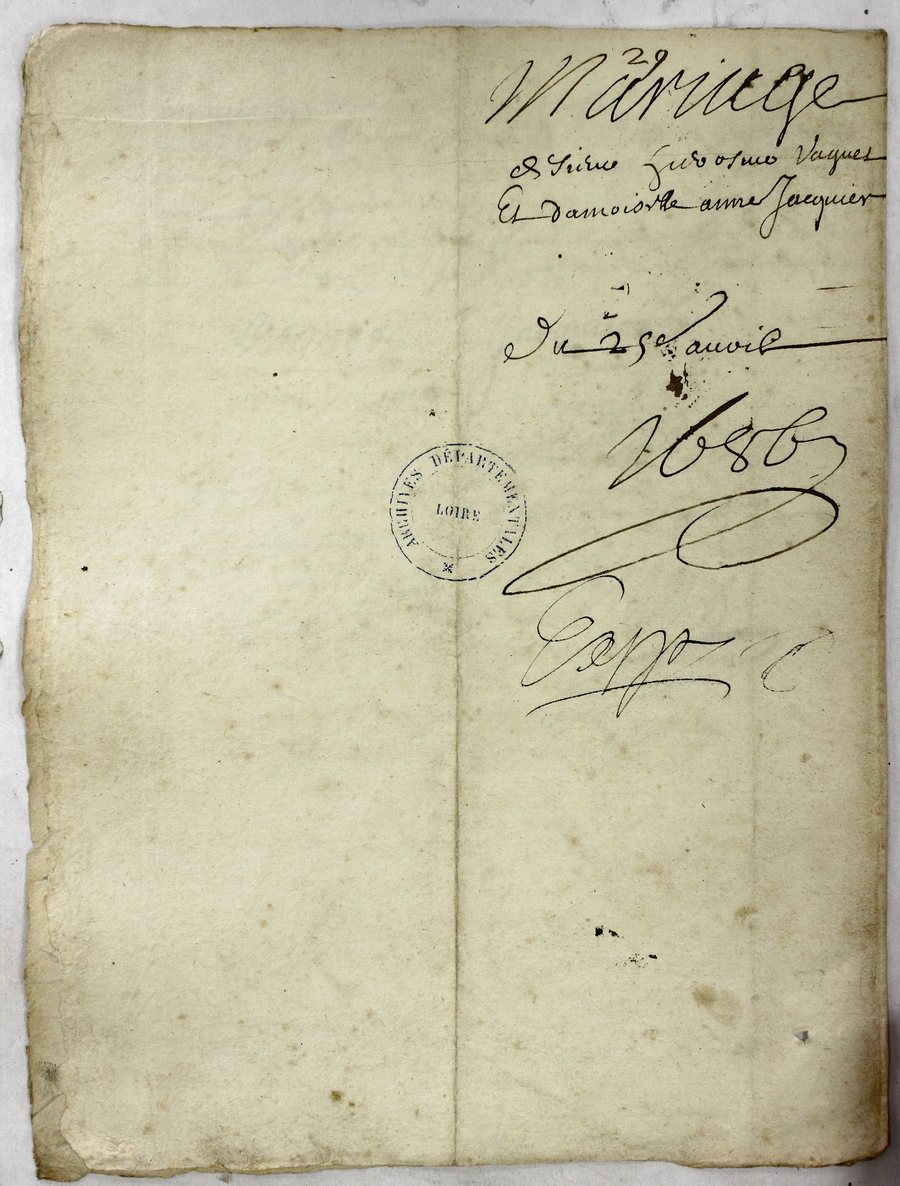 29
Mariage
de Sieur Hierosme Vaguet
Et damoiselle anne Jacquier
Du 25e Janvie
1686
Expp
ARCHIVES DÉPARTEMENTALES
LOIRE